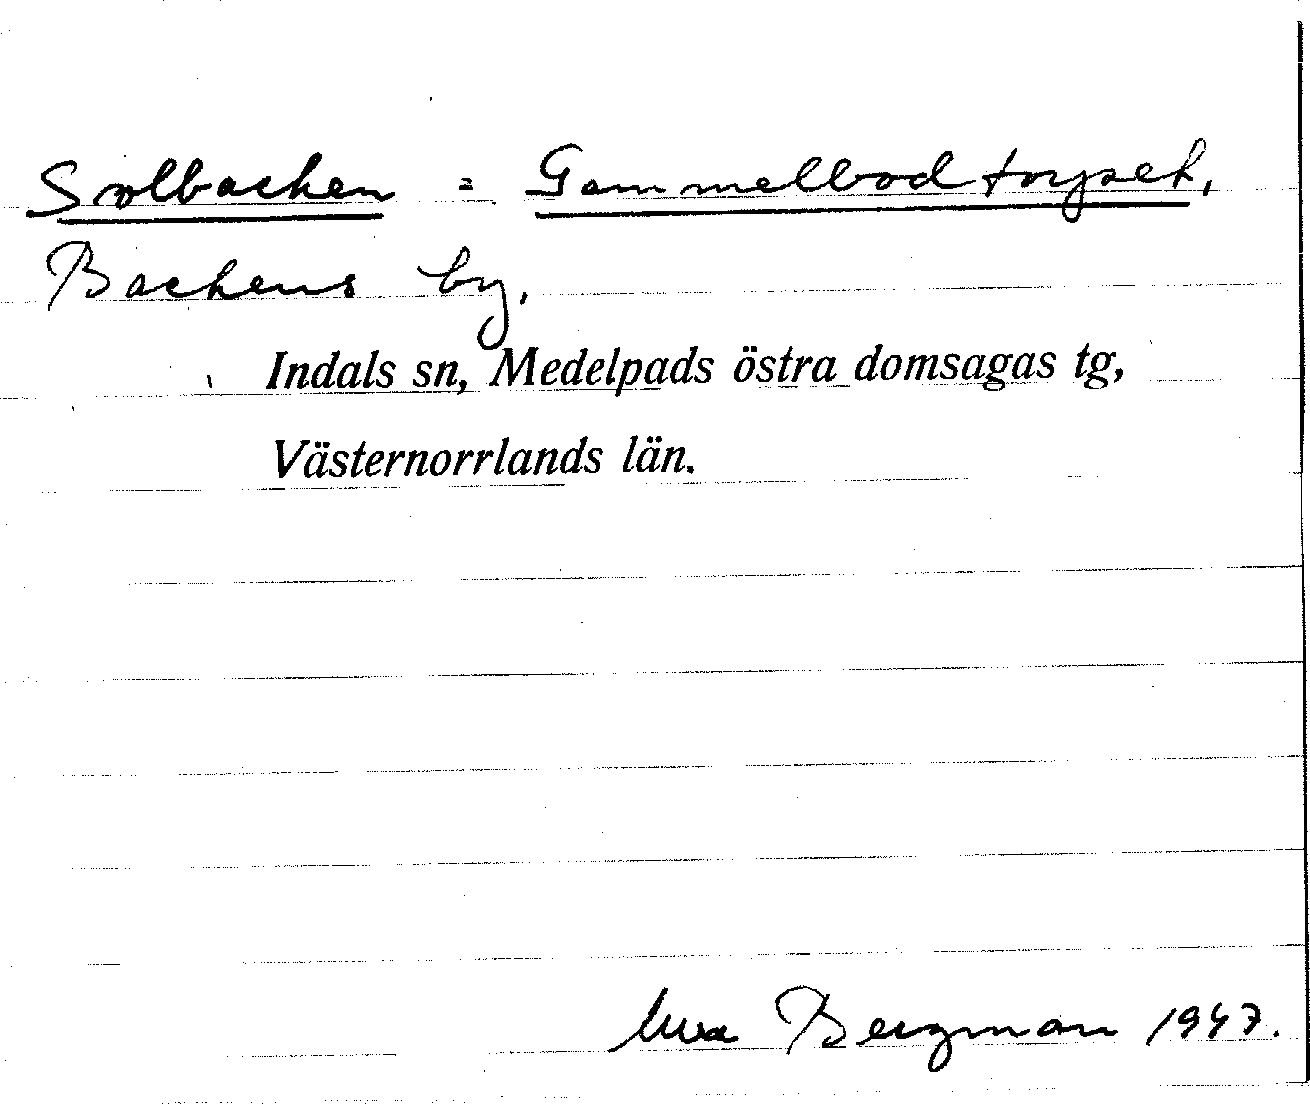 Solbacken = Gammelbodtorpet,
Backens by.
Indals sn, Medelpads östra domsagas tg,
Västernorrlands län.
Bergman 1947.